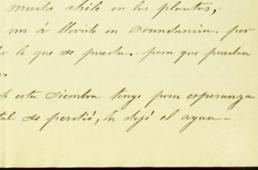 mucho chile en las plantas,
nos á llovido en avundancia. por
lo que se puesta. para que puedan
esta siembra tengo pura esperanza
se perdió, la dejó el agua